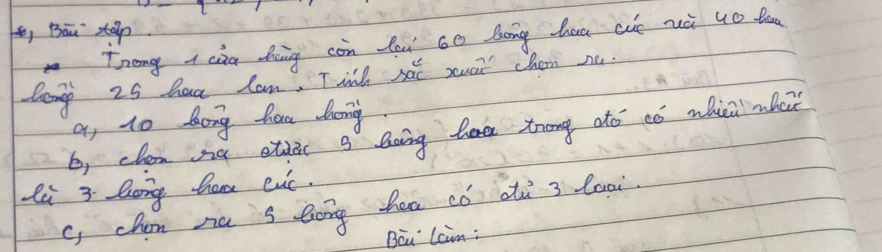 *, Bài tập.
Trong 1 cửa hàng còn lại 60 bông hoa cúc và 40 hoa
hồng 25 hoa lan. Tính xác xuất chọn ra.
a, 10 bông hoa hồng.
b, chọn ra được 5 bông hoa trong đó có nhiều nhất
là 3 bông hoa cúc.
c, chọn ra 5 bông hoa có đủ 3 loại.
Bài làm: